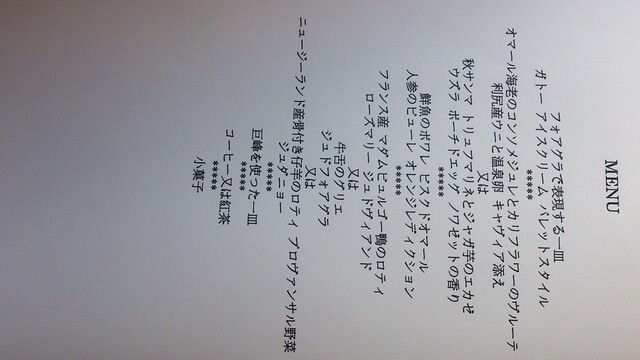 MENU
フォアグラで表現する一皿
ガトー アイスクリーム パレットスタイル
*****
オマール海老のコンソメジュレとカリフラワーのヴルーテ
利尻産ウニと温泉卵 キャヴィア添え
又は
秋サンマ トリュフマリネとジャガ芋のエカゼ
ウズラ ポーチドエッグ ノワゼットの香り
*****
鮮魚のポワレ ビスクドオマール
人参のピューレ オレンジレディクション
*****
フランス産 マダムビュルゴー鴨のロティ
ローズマリー ジュドヴィアンド
又は
牛舌のグリエ
ジュドフォアグラ
又は
ニュージーランド産骨付き仔羊のロティ プロヴァンサル野菜
ジュダニョー
*****
巨峰を使った一皿
*****
コーヒー又は紅茶
*****
小菓子